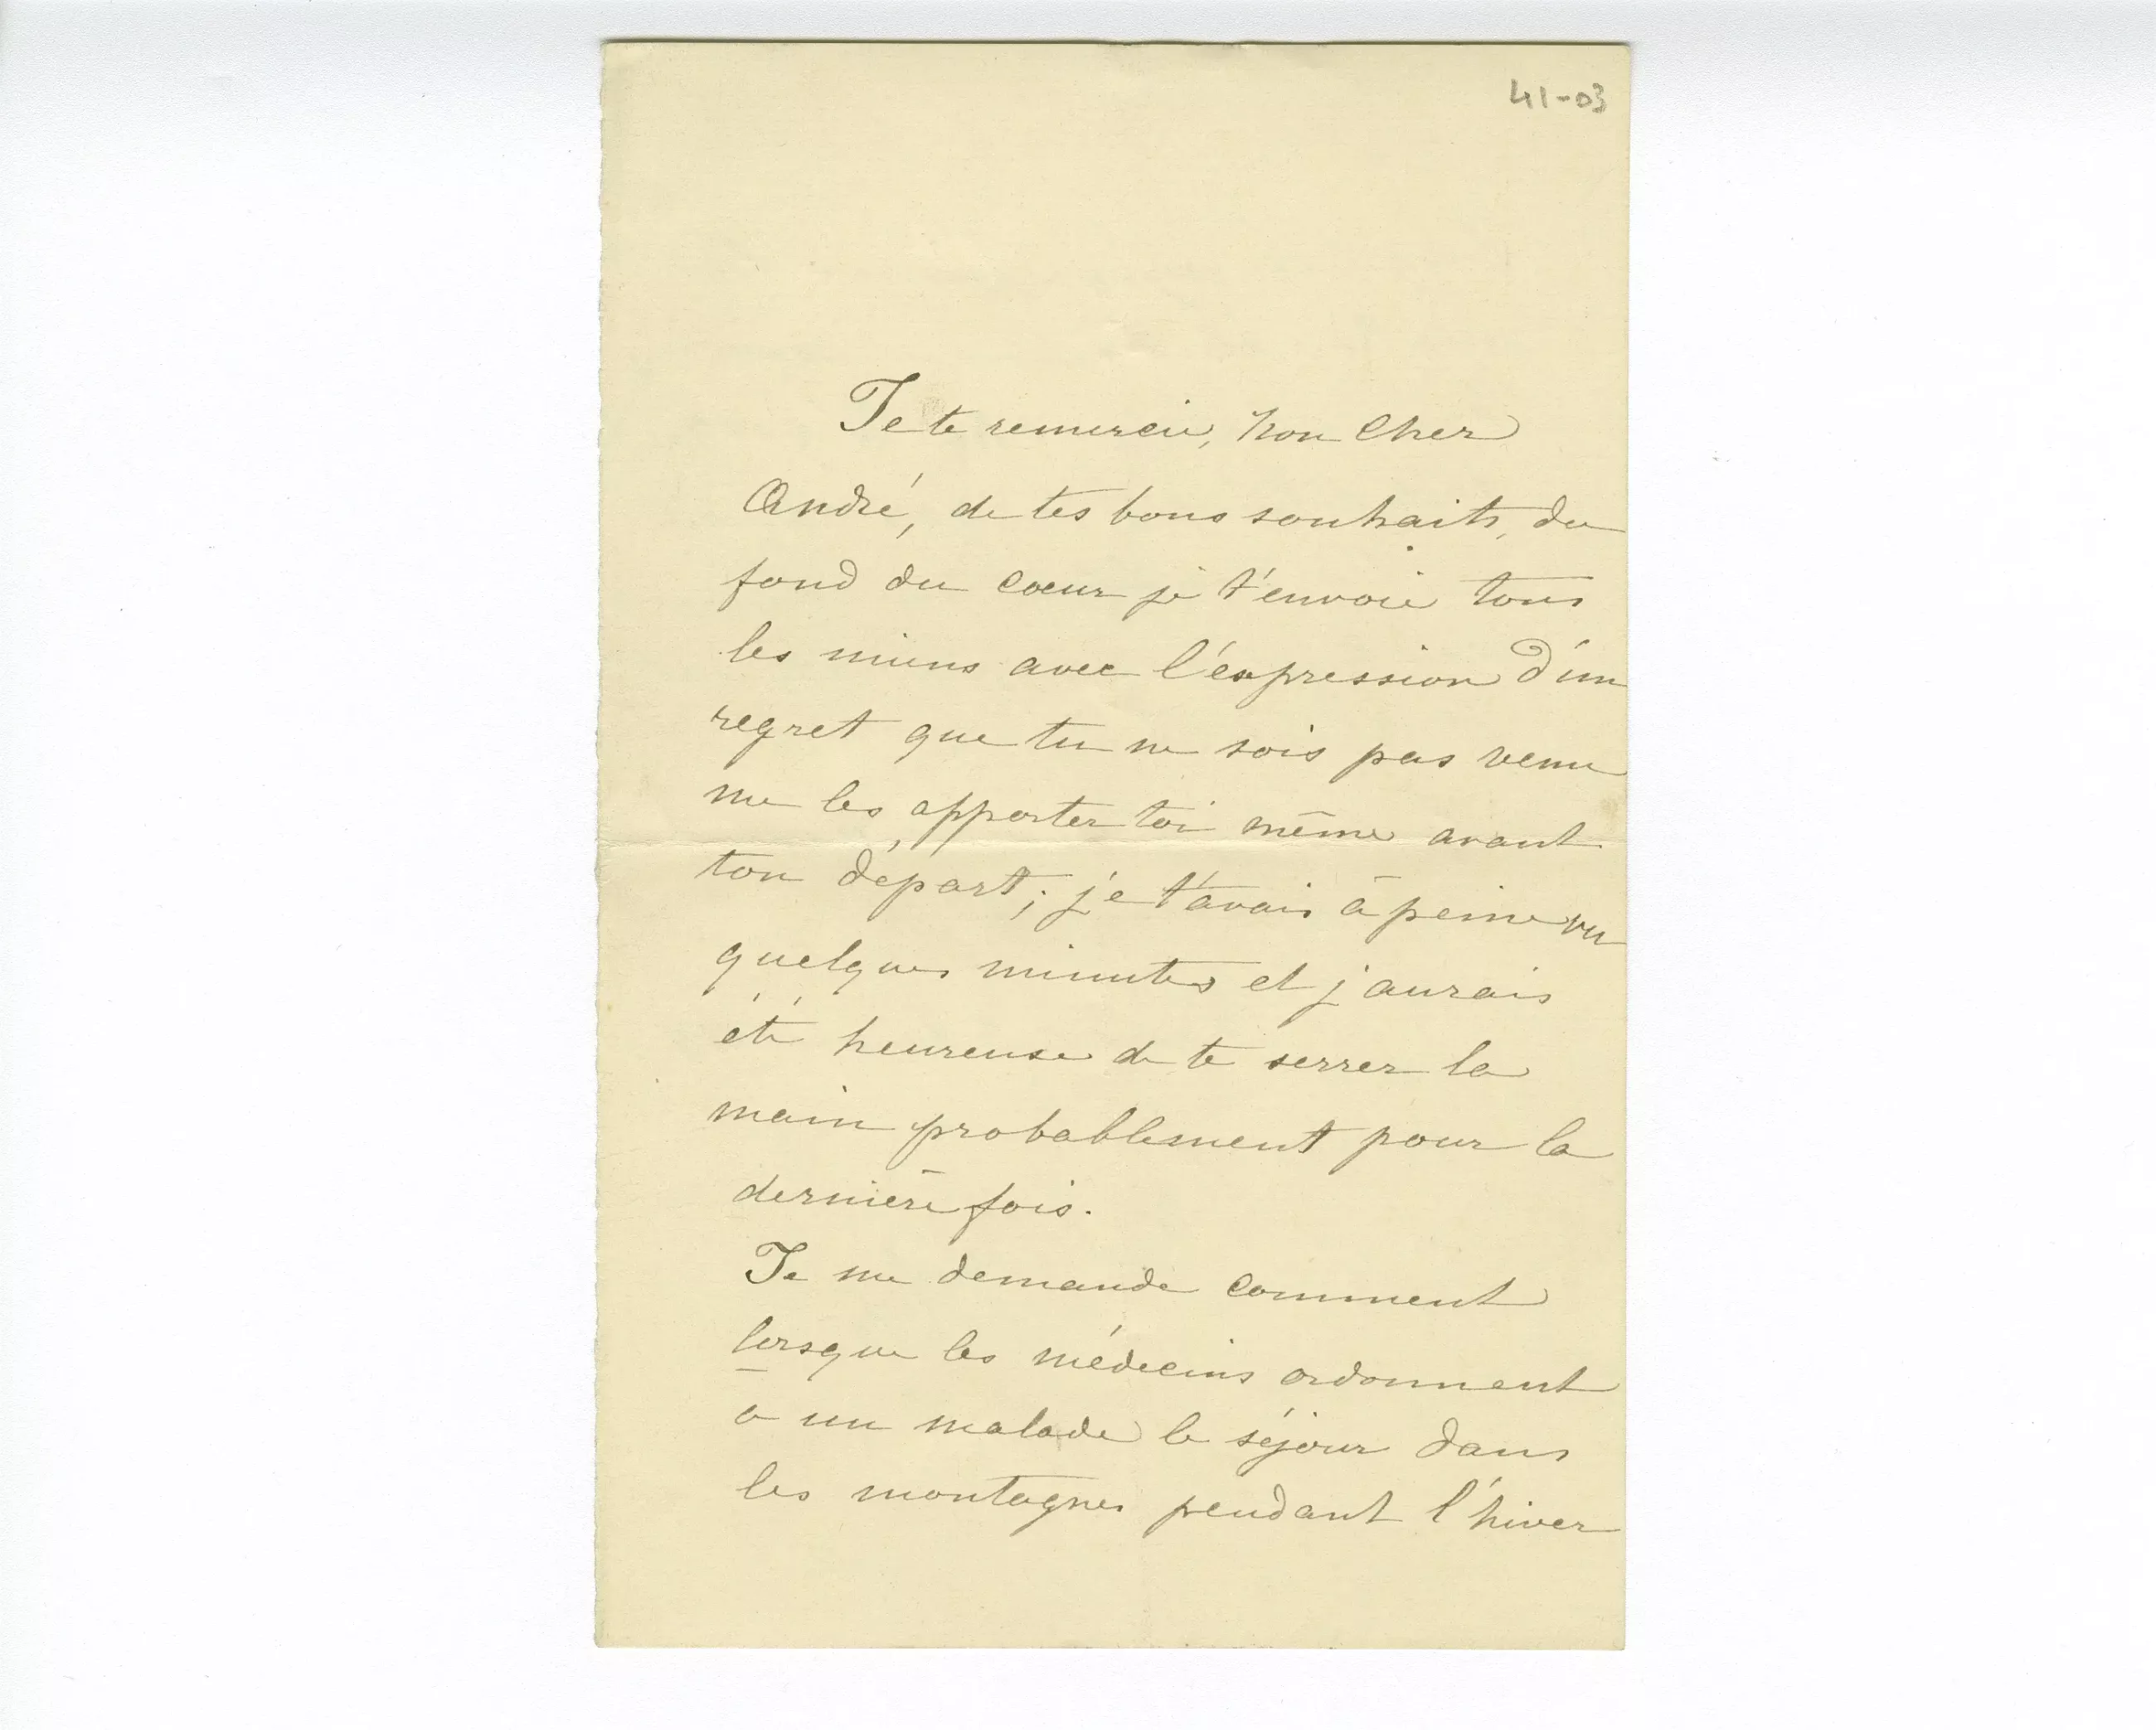 41-03
Je te remercie, mon cher
André, de tes bons souhaits, du
fond du coeur je t'envoie tous
les miens avec l'expression d'un
regret que tu ne sois pas venu
me les apporter toi même avant
ton départ; je t'avais à peine vu
quelques minutes et j'aurais
été heureuse de te serrer la
main probablement pour la
dernière fois.
Je me demande comment
lorsque les médecins ordonnent
à un malade le séjour dans
les montagnes pendant l'hiver